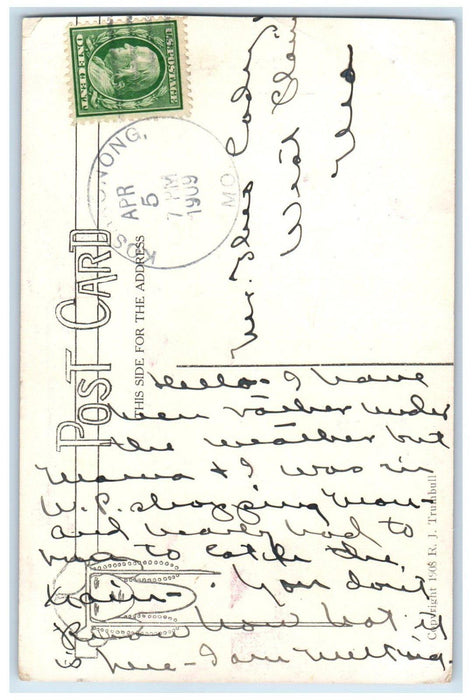 ONE CENT
U.S. POSTAGE
KOSHKONONG, MO.
APR
5
7 PM
1909
POST CARD
THIS SIDE FOR THE ADDRESS
Mr. Theo Cody
West Plains
Mo
Hello - I have
been rather under
the weather but
Mama & I was in
W.P. shopping Mon-
and nearly had to
run to catch the
train - . You don't
know how hot is
here - I am melting.
Copyright 1908 R. J. Trumbull